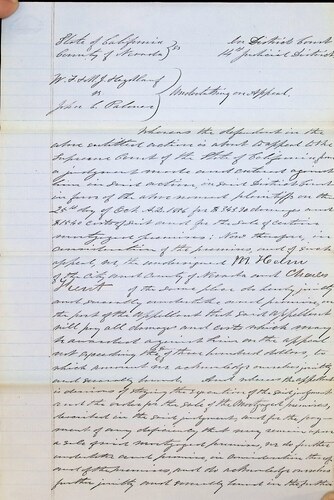 State of California
County of Nevada } ss
In District Court
14th Judicial District
W. F. & M. J. Hazelland
vs
John L Palmer
} Undertaking on Appeal.
Whereas the defendant in the
above entitled action is about to appeal to the
Supreme Court of the State of California from
a judgment made and entered against
him in said action, in said District Court
in favor of the above named plaintiffs on the
day of Oct. A.D. for damages
costs of suit and for the sale of certain
mortgaged premises; Now therefore, in
consideration of the premises, and of such
appeal, we the undersigned M. Helm
of the City and County of Nevada and Charles
Kent of the same place do hereby jointly
and severally undertake and promise, on
the part of the Appellant that said Appellant
will pay all damages and costs which may
be awarded against him on the appeal
not exceeding three hundred dollars, to
which amount we acknowledge ourselves jointly
and severally bound. And whereas the appellant
is desirous of staying the execution of the said judgment
and the order for the sale of the mortgaged premises
described in the said judgment and for the pay-
ment of any deficiency that may arise upon
a sale of said mortgaged premises, we do further
undertake and promise, in consideration thereof
and of the premises, and do acknowledge ourselves
further jointly and severally bound in the further